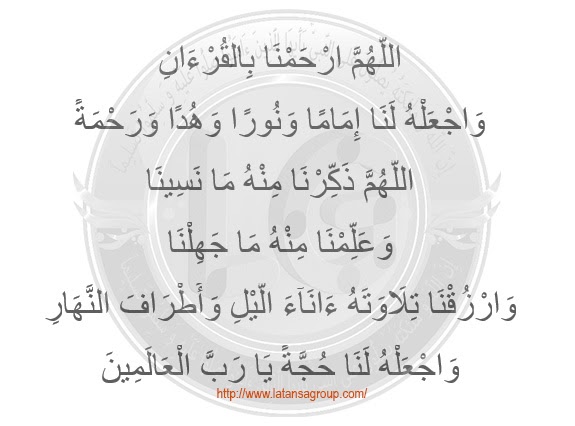 اللّهُمَّ ارْحَمْنَا بِالقُرْءَانِ
وَاجْعَلْهُ لَنَا إِمَامًا وَنُورًا وَهُدًا وَرَحْمَةً
اللّهُمَّ ذَكِّرْنَا مِنْهُ مَا نَسِينَا
وَعَلِّمْنَا مِنْهُ مَا جَهِلْنَا
وَارْزُقْنَا تِلَاوَتَهُ ءَانَآءَ الّيْلِ وَأَطْرَافَ النَّهَارِ
وَاجْعَلْهُ لَنَا حُجَّةً يَا رَبَّ الْعَالَمِينَ
http://www.latansagroup.com/